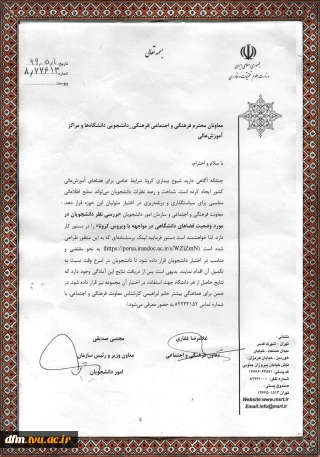 بسمه تعالی
جمهوری اسلامی ایران
وزارت علوم، تحقیقات و فناوری
تاریخ: ۹۹،۵،۱
شماره: ۸،۷۷۶۱۳
پیوست:
معاونان محترم فرهنگی و اجتماعی/فرهنگی_دانشجویی دانشگاه‌ها و مراکز
آموزش‌عالی
با سلام و احترام؛
چنانکه آگاهی دارید شیوع بیماری کرونا شرایط خاصی برای فضاهای آموزش‌عالی
کشور ایجاد کرده است. شناخت و رصد نظرات دانشجویان می‌تواند منبع اطلاعاتی
مناسبی برای سیاستگذاری و برنامه‌ریزی در اختیار متولیان این حوزه قرار دهد.
معاونت فرهنگی و اجتماعی و سازمان امور دانشجویان «بررسی نظر دانشجویان در
مورد وضعیت فضاهای دانشگاهی در مواجهه با ویروس کرونا» را در دستور کار
دارد. لذا خواهشمند است دستور فرمایید لینک پرسشنامه‌ای که به این منظور طراحی
شده است (https://porsa.irandoc.ac.ir/s/WZiZmN) به نحو مقتضی و
مناسب در اختیار دانشجویان قرار داده شود تا دانشجویان در اسرع وقت نسبت به
تکمیل آن اقدام نمایند. بدیهی است پس از دریافت نتایج این آمادگی وجود دارد که
نتایج حاصل از هر دانشگاه جهت استفاده در اختیار آن مجموعه نیز قرار داده شود. در
ضمن برای هماهنگی بیشتر خانم ابراهیمی کارشناس معاونت فرهنگی و اجتماعی، با
شماره تماس ۸۲۲۳۳۱۵۲ به حضور معرفی می‌شود./
غلامرضا غفاری
معاون فرهنگی و اجتماعی
مجتبی صدیقی
معاون وزیر و رئیس سازمان
امور دانشجویان
نشانی:
تهران، شهرک قدس
میدان صنعت، خیابان
خوردین، خیابان هرمزان،
نبش خیابان پیروزان جنوبی
کد پستی:
شماره تلفن:
صندوق پستی:
تهران
Website:www.msrt.ir
Email:info@msrt.ir
dfm.tvu.ac.ir